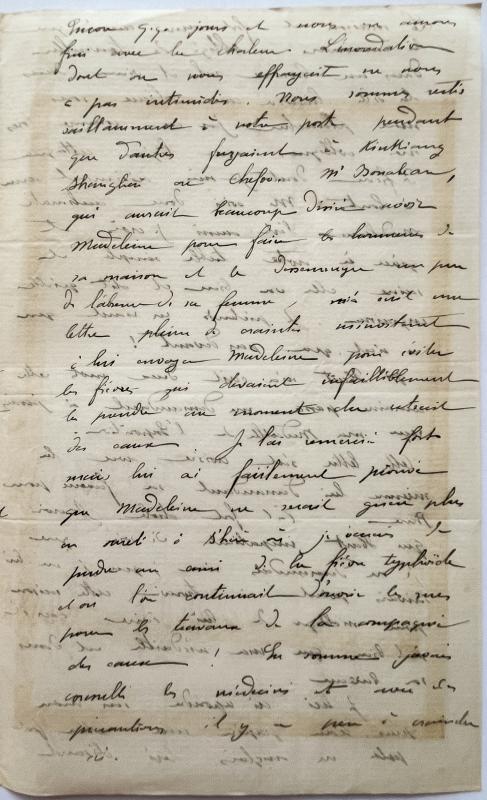 Encore 15 jours et nous en aurons
fini avec la chaleur. L'inondation
dont on nous effrayait ne nous
a pas intimidés. Nous sommes restés
vaillamment à notre poste pendant
que d'autres fuyaient à Kiukiang
Shanghai ou Chefoo. Mr Bonabeau,
qui aurait beaucoup désiré avoir
Madeleine pour faire les honneurs de
sa maison et le désennuyer un peu
de l'absence de sa femme, m'a écrit une
lettre pleine de craintes m'invitant
à lui envoyer Madeleine pour éviter
les fièvres qui devaient infailliblement
la prendre au moment du retrait
des eaux. Je l'ai remercié fort
mais lui ai facilement prouvé
que Madeleine ne serait guère plus
en sureté à Shaï où je venais de
perdre un ami de la fièvre typhoïde
et où l'on continuait d'ouvrir les rues
pour les travaux de la compagnie
des eaux! En somme j'avais
consulté les médecins et avec des
précautions il y a peu à craindre